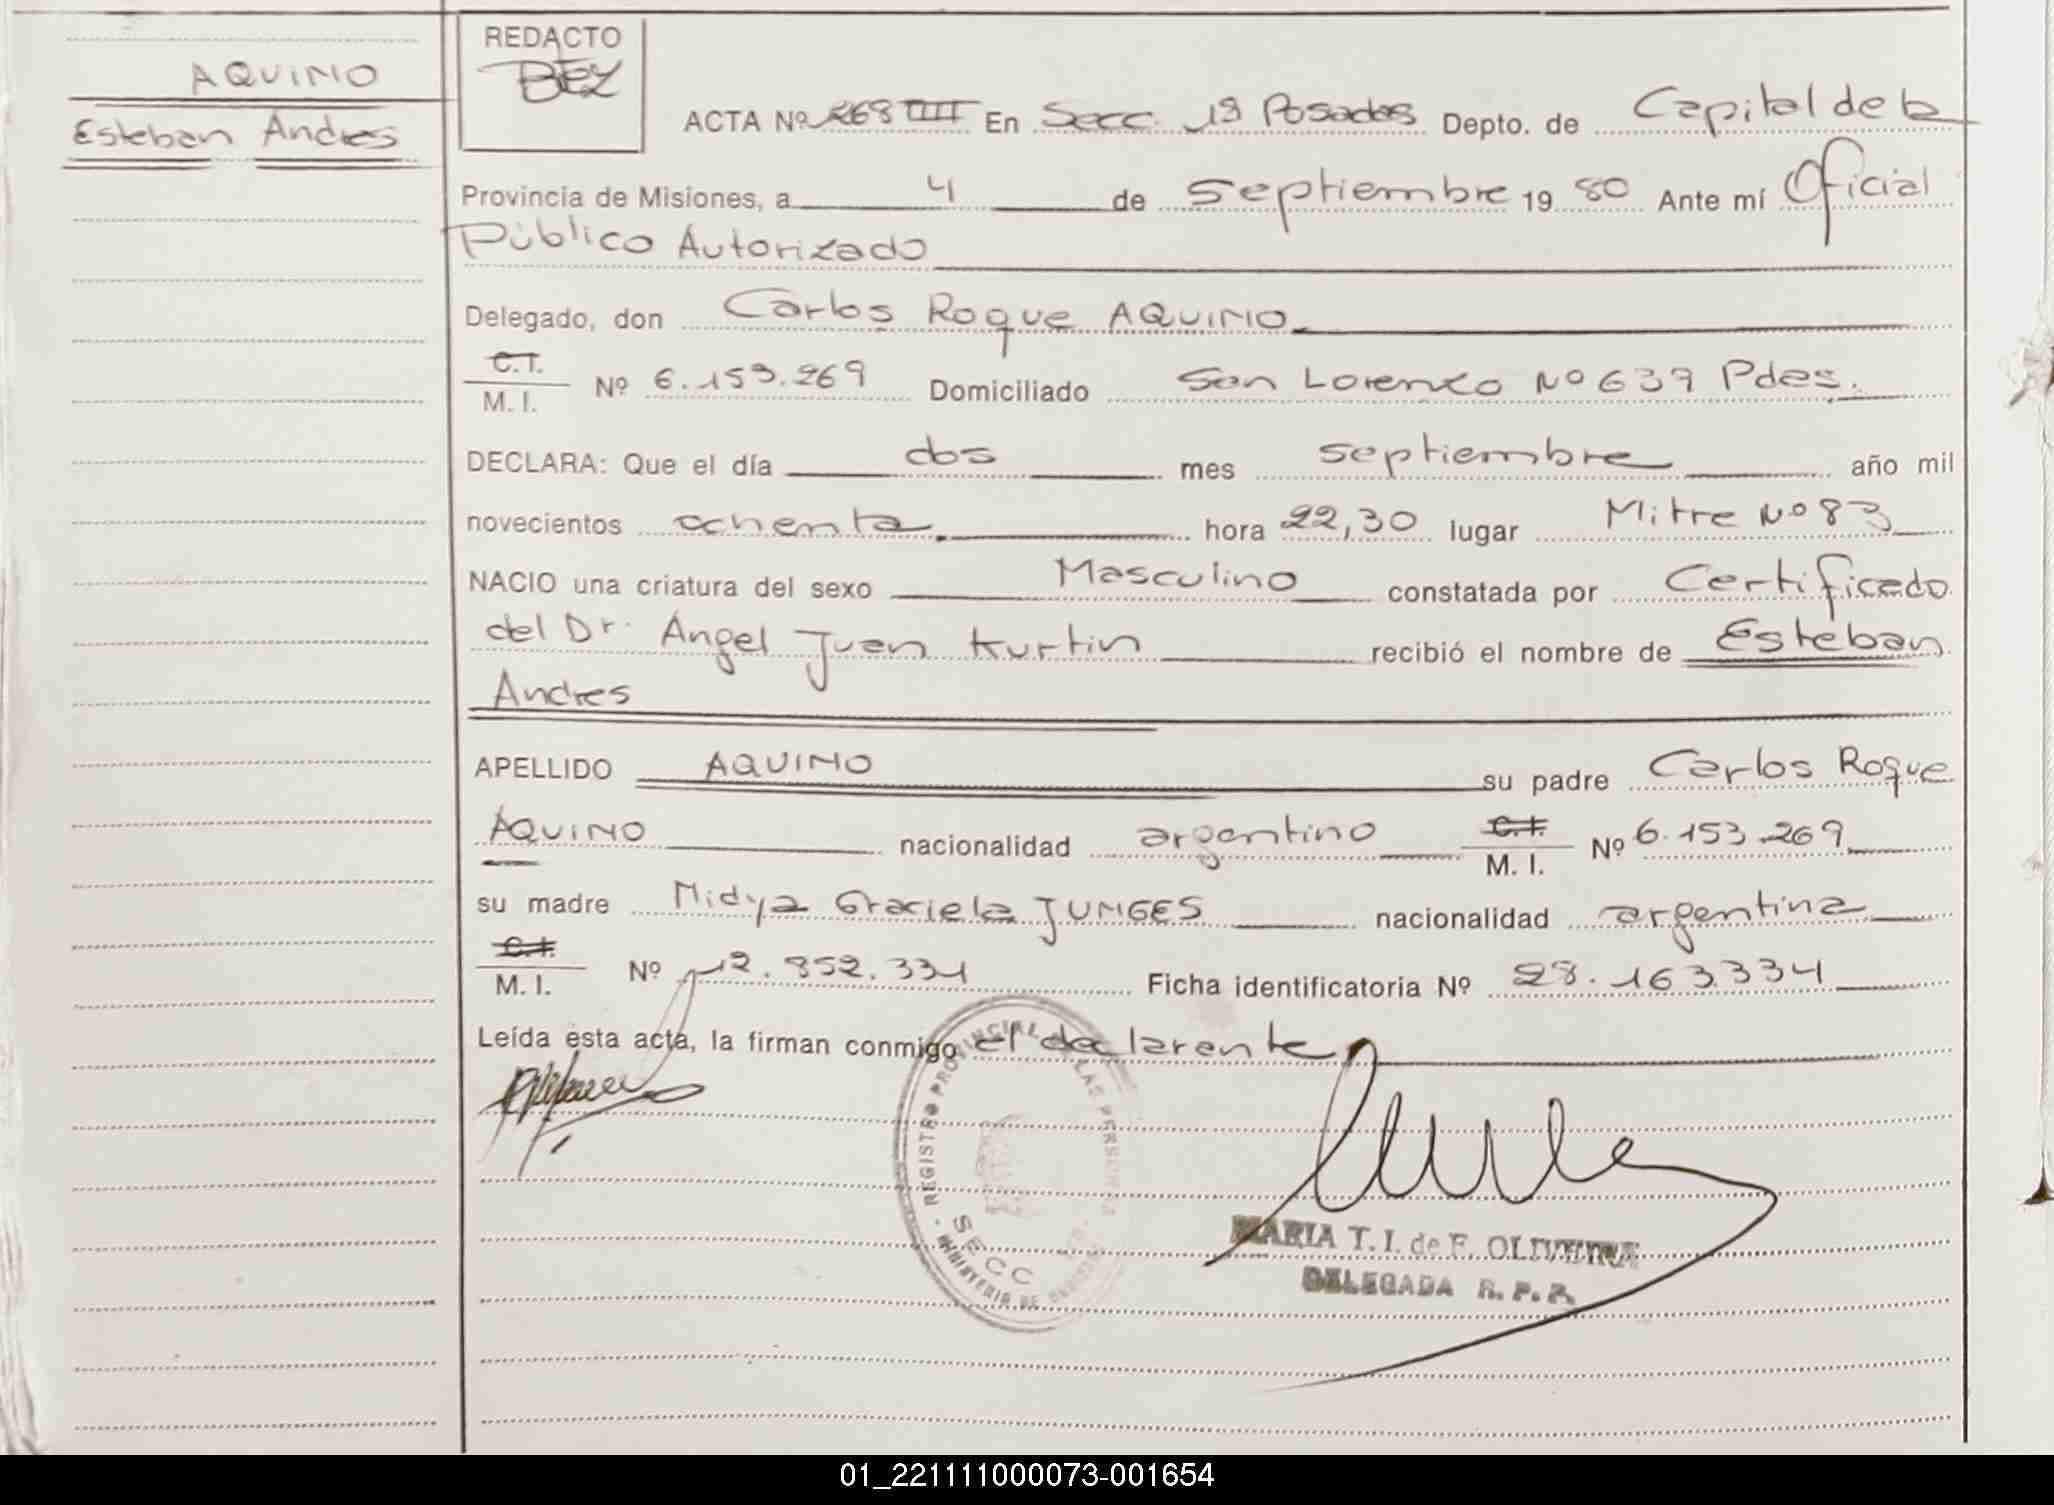 AQUINO
Esteban Andres
REDACTO
BEZ
ACTA Nº 268 IIII En Secc. 1ª Posadas Depto. de Capital de la
Provincia de Misiones, a 4 de Septiembre 19 80 Ante mí Oficial
Público Autorizado
Delegado, don Carlos Roque AQUINO
C.I.
M. I. Nº 6.153.269 Domiciliado San Lorenzo Nº 639 Pdas.
DECLARA: Que el día dos mes septiembre año mil
novecientos ochenta, hora 22,30 lugar Mitre Nº 83
NACIO una criatura del sexo Masculino constatada por Certificado
del Dr. Angel Juan Kurtin recibió el nombre de Esteban
Andres
APELLIDO AQUINO su padre Carlos Roque
AQUINO nacionalidad argentino C.I.
M. I. Nº 6.153.269
su madre Nidya Graciela JUNGES nacionalidad argentina
C.I.
M. I. Nº 12.852.331 Ficha identificatoria Nº 28.163.334
Leída esta acta, la firman conmigo el declarante
REGISTRO PROVINCIAL DE LAS PERSONAS
SECC
MINISTERIO DE GOBIERNO
MARIA T. I. de F. OLIVEIRA
DELEGADA R. P. P.
01_221111000073-001654